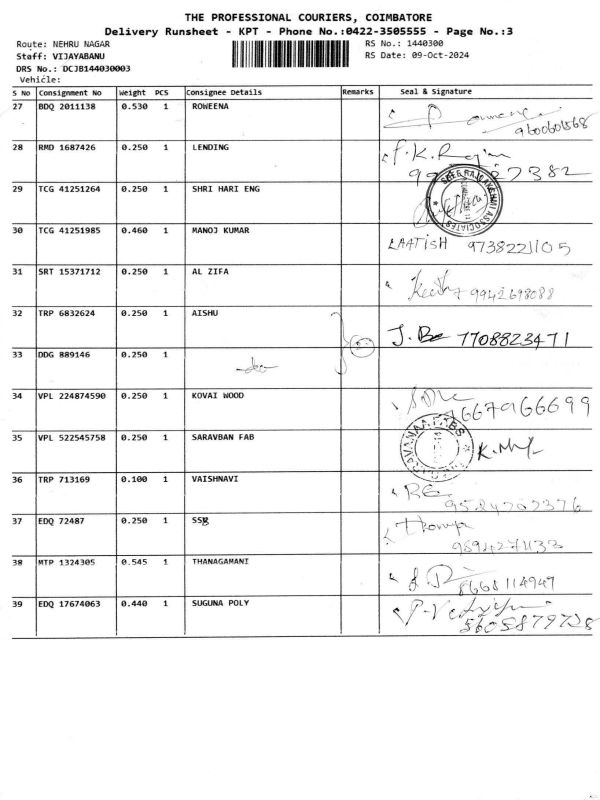 THE PROFESSIONAL COURIERS, COIMBATORE
Delivery Runsheet - KPT - Phone No.:0422-3505555 - Page No.:3
Route: NEHRU NAGAR RS No.: 1440300
Staff: VIJAYABANU RS Date: 09-Oct-2024
DRS No.: DCJB144030003
Vehicle:
S No Consignment No Weight PCS Consignee Details Remarks Seal & Signature
27 BDQ 2011138 0.530 1 ROWEENA
28 RMD 1687426 0.250 1 LENDING
29 TCG 41251264 0.250 1 SHRI HARI ENG
30 TCG 41251985 0.460 1 MANOJ KUMAR LAATISH 9738221105
31 SRT 15371712 0.250 1 AL ZIFA 9942698088
32 TRP 6832624 0.250 1 AISHU 7708823471
33 DDG 889146 0.250 1
34 VPL 224874590 0.250 1 KOVAI WOOD
35 VPL 522545758 0.250 1 SARAVBAN FAB
36 TRP 713169 0.100 1 VAISHNAVI
37 EDQ 72487 0.250 1
38 MTP 1324305 0.545 1 THANAGAMANI 8668114949
39 EDQ 17674063 0.440 1 SUGUNA POLY